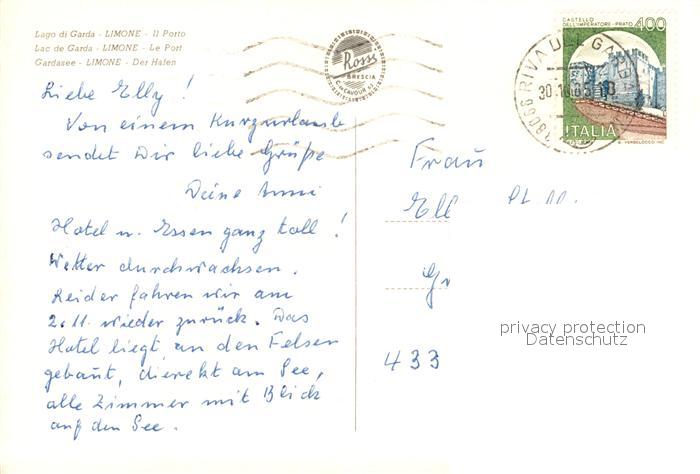 Lago di Garda - LIMONE - Il Porto
Lac de Garda - LIMONE - Le Port
Gardasee - LIMONE - Der Hafen
Ross
BRESCIA
CASTELLO
DELL'IMPERATORE - PRATO 400
38066 RIVA DEL GARDA
30.10
ITALIA
Liebe Elly!
Von einem Kurzurlaub
sendet Dir liebe Grüße
Deine Anni
Hotel u. Essen ganz toll!
Wetter durchwachsen.
Leider fahren wir am
2.11. wieder zurück. Das
Hotel liegt an den Felsen
gebaut, dierekt am See,
alle Zimmer mit Blick
auf den See.
Frau
Ell
Gr
433
privacy protection
Datenschutz